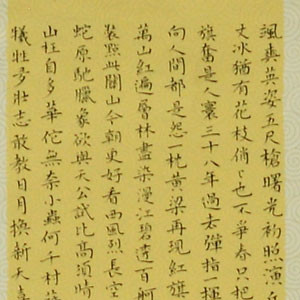 颯爽英姿五尺槍曙光初照演兵
丈冰猶有花枝俏〻也不爭春只把
旗奮是人寰三十八年過去彈指揮
向人間都是怨一枕黃粱再現紅旗
萬山紅遍層林盡染漫江碧透百舸
裝點此關山今朝更好看西風烈長空
蛇原馳臘象欲與天公試比高須晴
山枉自多華佗無奈小蟲何千村薜
犧牲多壯志敢教日月換新天喜